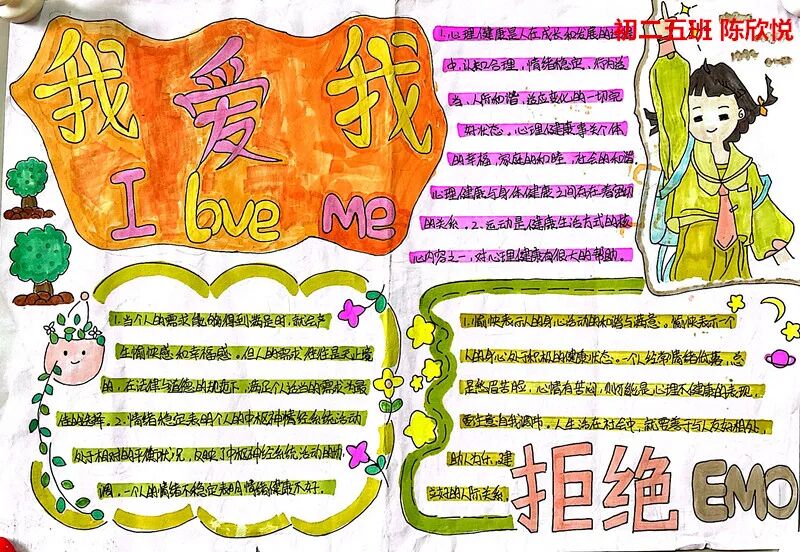 初二五班 陈欣悦
我爱我
I love me
1.心理健康是人在成长和发展的过程
中,认知合理,情绪稳定,行为适
当,人际和谐,适应变化的一切完
好状态,心理健康事关个体
的幸福,家庭的和睦,社会的和谐.
心理健康与身体健康之间存在着密切
的关系。2.运动是健康生活方式的核
心内容之一,对心理健康有很大的帮助.
1.当个人的需求能够得到满足时,就会产
生愉快感和幸福感。但人的需求往往是无止境
的,在法律与道德的规范下,满足个人适当的需求为最
佳的选择。2.情绪稳定表明个人的中枢神经系统活动
处于相对的平衡状况,反映了中枢神经系统活动的协
调,一个人的情绪不稳定表明情绪健康不好.
1.愉快表示人的身心活动的和谐与满意。愉快表示一个
人的身心处于积极的健康状态。一个人经常情绪低落,总
是愁眉苦脸,心情苦闷,则可能是心理不健康的表现,
要注意自我调节。人生活在社会中,就要善于与人友好相处,
助人为乐,建
立好的人际关系.
拒绝 EMO